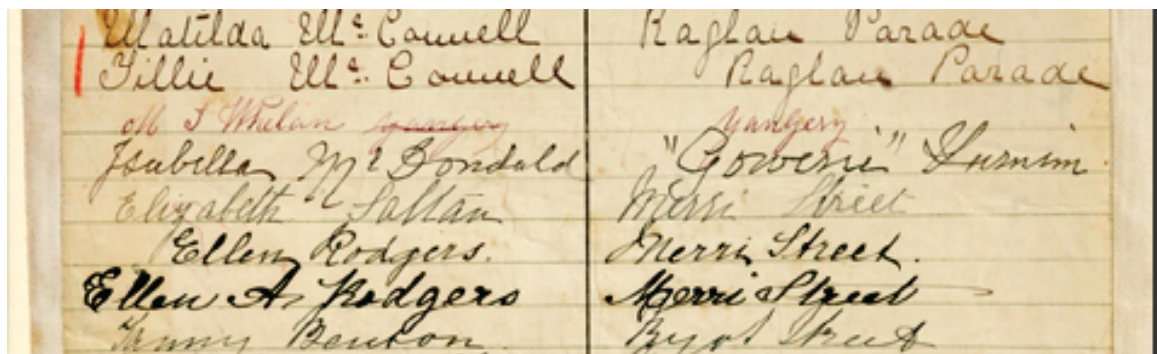 Matilda McConnell Raglan Parade
Tillie McConnell Raglan Parade
M J Whelan yangery yangery
Isabella McDondald "Gowerie"
Elizabeth Saltau Merri Street
Ellen Rodgers. Merri Street.
Ellen A. Rodgers Merri Street
Fanny Benson Street